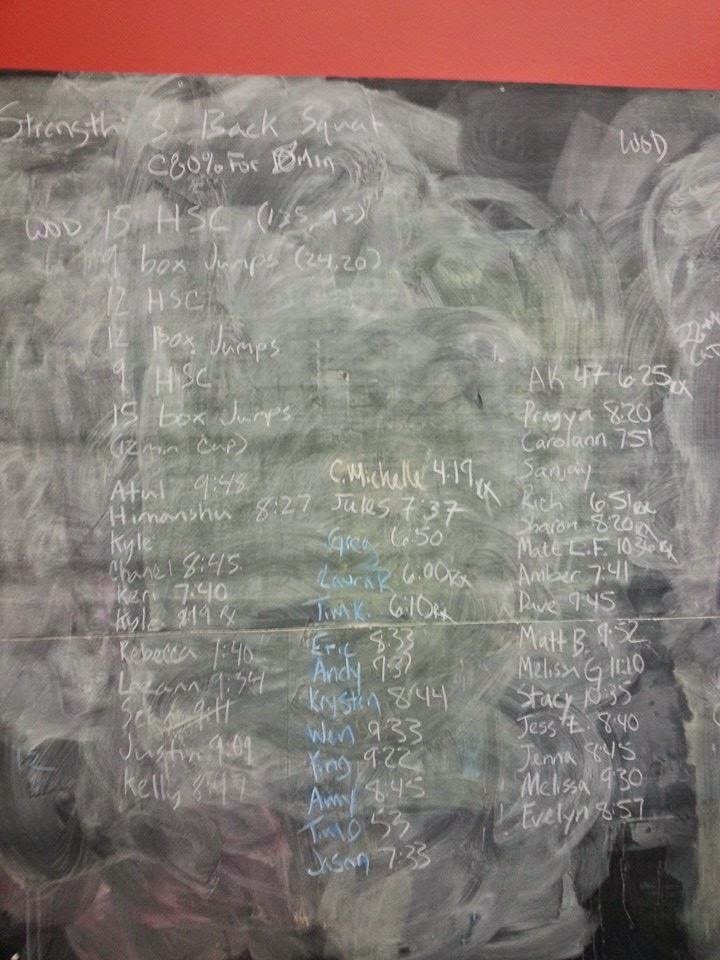 Strength: 3 Back Squat
@80% For Min
WOD 15 HSC (135, 95)
9 box Jumps (24,20)
12 HSC
12 Box Jumps
9 HSC
15 box Jumps
(12 min cap)
Atul 9:48
Himanshu 8:27
Kyle
Chanel 8:45
Keri 7:40
Kyle Rx
Rebecca 7:40
Luann 9:34
9:11
Justin 9:09
Kelly
C. Michelle 4:19 Rx
Jules 7:37
Greg 6:50
Laura R 6:00 Rx
Tim K. 6:10 Rx
Eric 8:33
Andy 9:37
Krysten 8:44
Wen 9:33
Ying 9:22
Amy 8:45
Tim O 53
Jason 7:33
WOD
AK 47 6:25 Rx
Pragya 8:20
Carolann 751
Sanjay
Rich 6:51 Rx
Sharon 8:20 Rx
Matt L.F. 10:36 Rx
Amber 7:41
Dave 9:45
Matt B. 9:52
Melissa G 11:10
Stacy :35
Jess E. 8:40
Jenna 8:45
Melissa 9:30
Evelyn 8:57